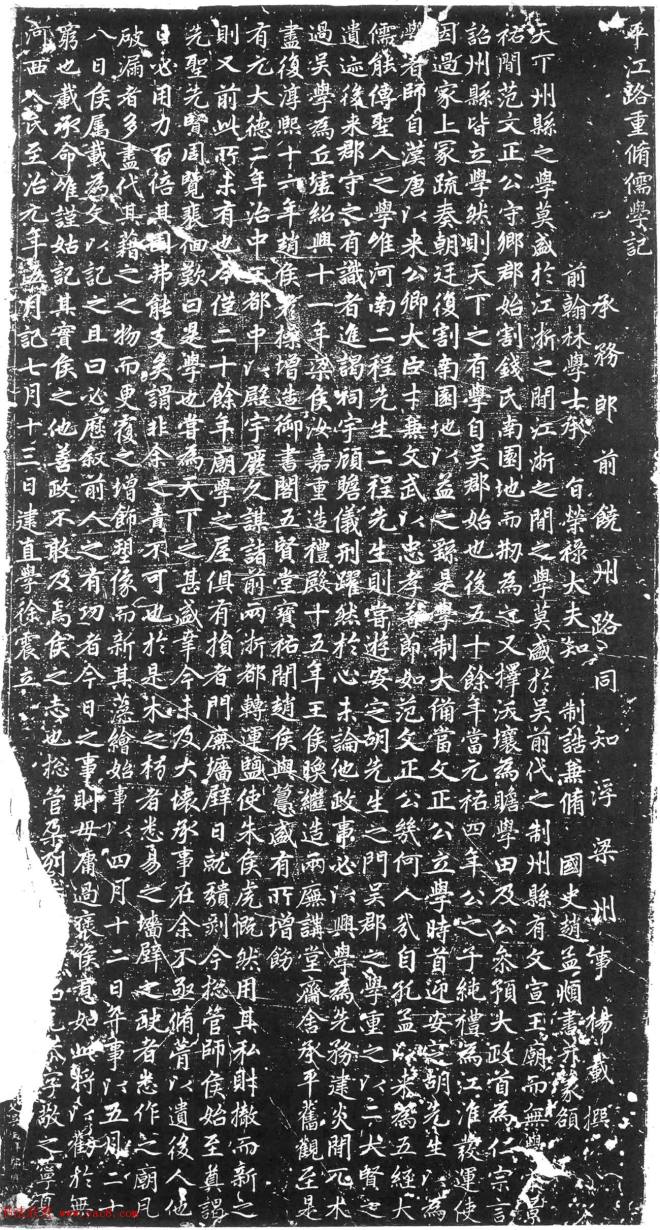 平江路重脩儒學記
承務郎前饒州路同知浮梁州事楊載撰
前翰林學士承旨榮祿大夫知制誥兼脩國史趙孟頫書并篆額
天下州縣之學莫盛於江浙之間江浙之間之學莫盛於吳前代之制州縣有文宣王廟而無學景
祐間范文正公守鄉郡始割錢氏南園地而刱為之又擇沃壤為贍學田及公參預大政首為仁宗言
詔州縣皆立學然則天下之有學自吳郡始也後五十餘年當元祐四年公之子純禮為江淮發運使
因過家上冢疏奏朝廷復割南園地以益之繇是學制大備當文正公立學時首迎安定胡先生以為
學者師自漢唐以来公卿大臣才兼文武以忠孝 如范文正公幾何人哉自孔孟以来為五經大
儒能傳聖人之學唯河南二程先生二程先生則嘗遊安定胡先生之門吳郡之學重之以二大賢之
遺迹後来郡守之有識者進謁祠宇顧瞻儀刑躍然於心未論他政事必以興學為先務建炎間兀术
過吳學為丘墟紹興十一年梁侯汝嘉重造禮殿十五年王侯㬇繼造兩廡講堂齋舍承平舊觀至是
盡復淳熙十六年趙侯 增造御書閣五賢堂寶祐間趙侯與𥲅咸有所增飭
有元大德二年治中王都中以殿宇廢久謀諸前兩浙都轉運鹽使朱侯虎慨然用其私財撤而新之
則又前此所未有也今僅二十餘年廟學之屋俱有損者門廡墻壁日就隤剥今捴管師侯始至真謁
先聖先賢周覽裴佪歎曰是學也嘗為天下之甚盛幸今未及大壞承事在余不亟脩葺以遺後人他
日必用力百倍其 弗能支矣謂非余之責不可也於是木之朽者悉易之墻壁之𢾭者悉作之廟凡
破漏者多盡代其藉之之物而更覆之增飾塑像而新其藻繪始事以四月十二日卒事以五月二十
八日侯属載為文以記之且曰必歷叙前人之有功者今日之事則毋庸過褒侯意如此將以勸於無
窮也載承命唯謹姑記其實侯之他善政不敢及焉侯之志也捴管 字敬之寧夏
河西人氏至治元年五月記七月十三日建直學徐震立
www.yac8.com